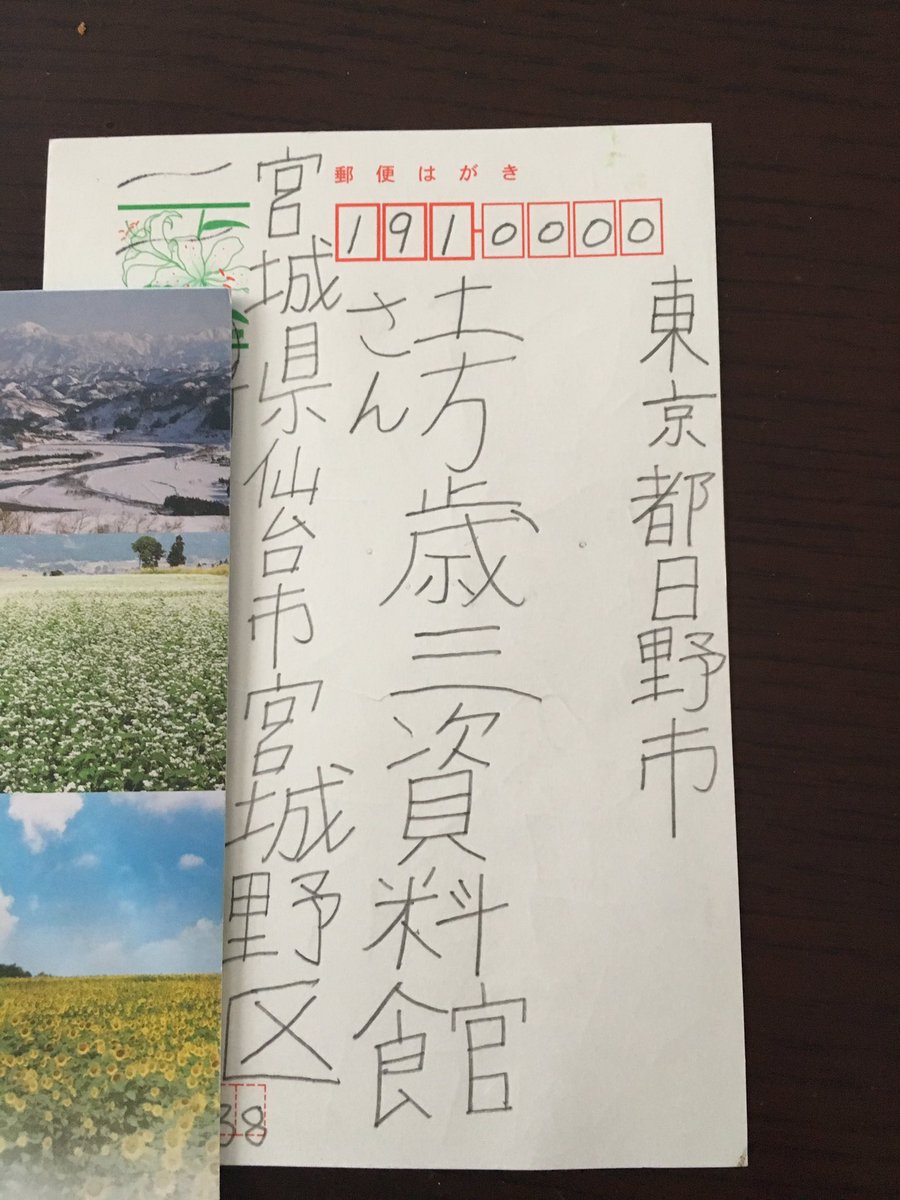 郵便はがき
191-0000
東京都日野市
土方歳三資料館
さん
宮城県仙台市宮城野区
38